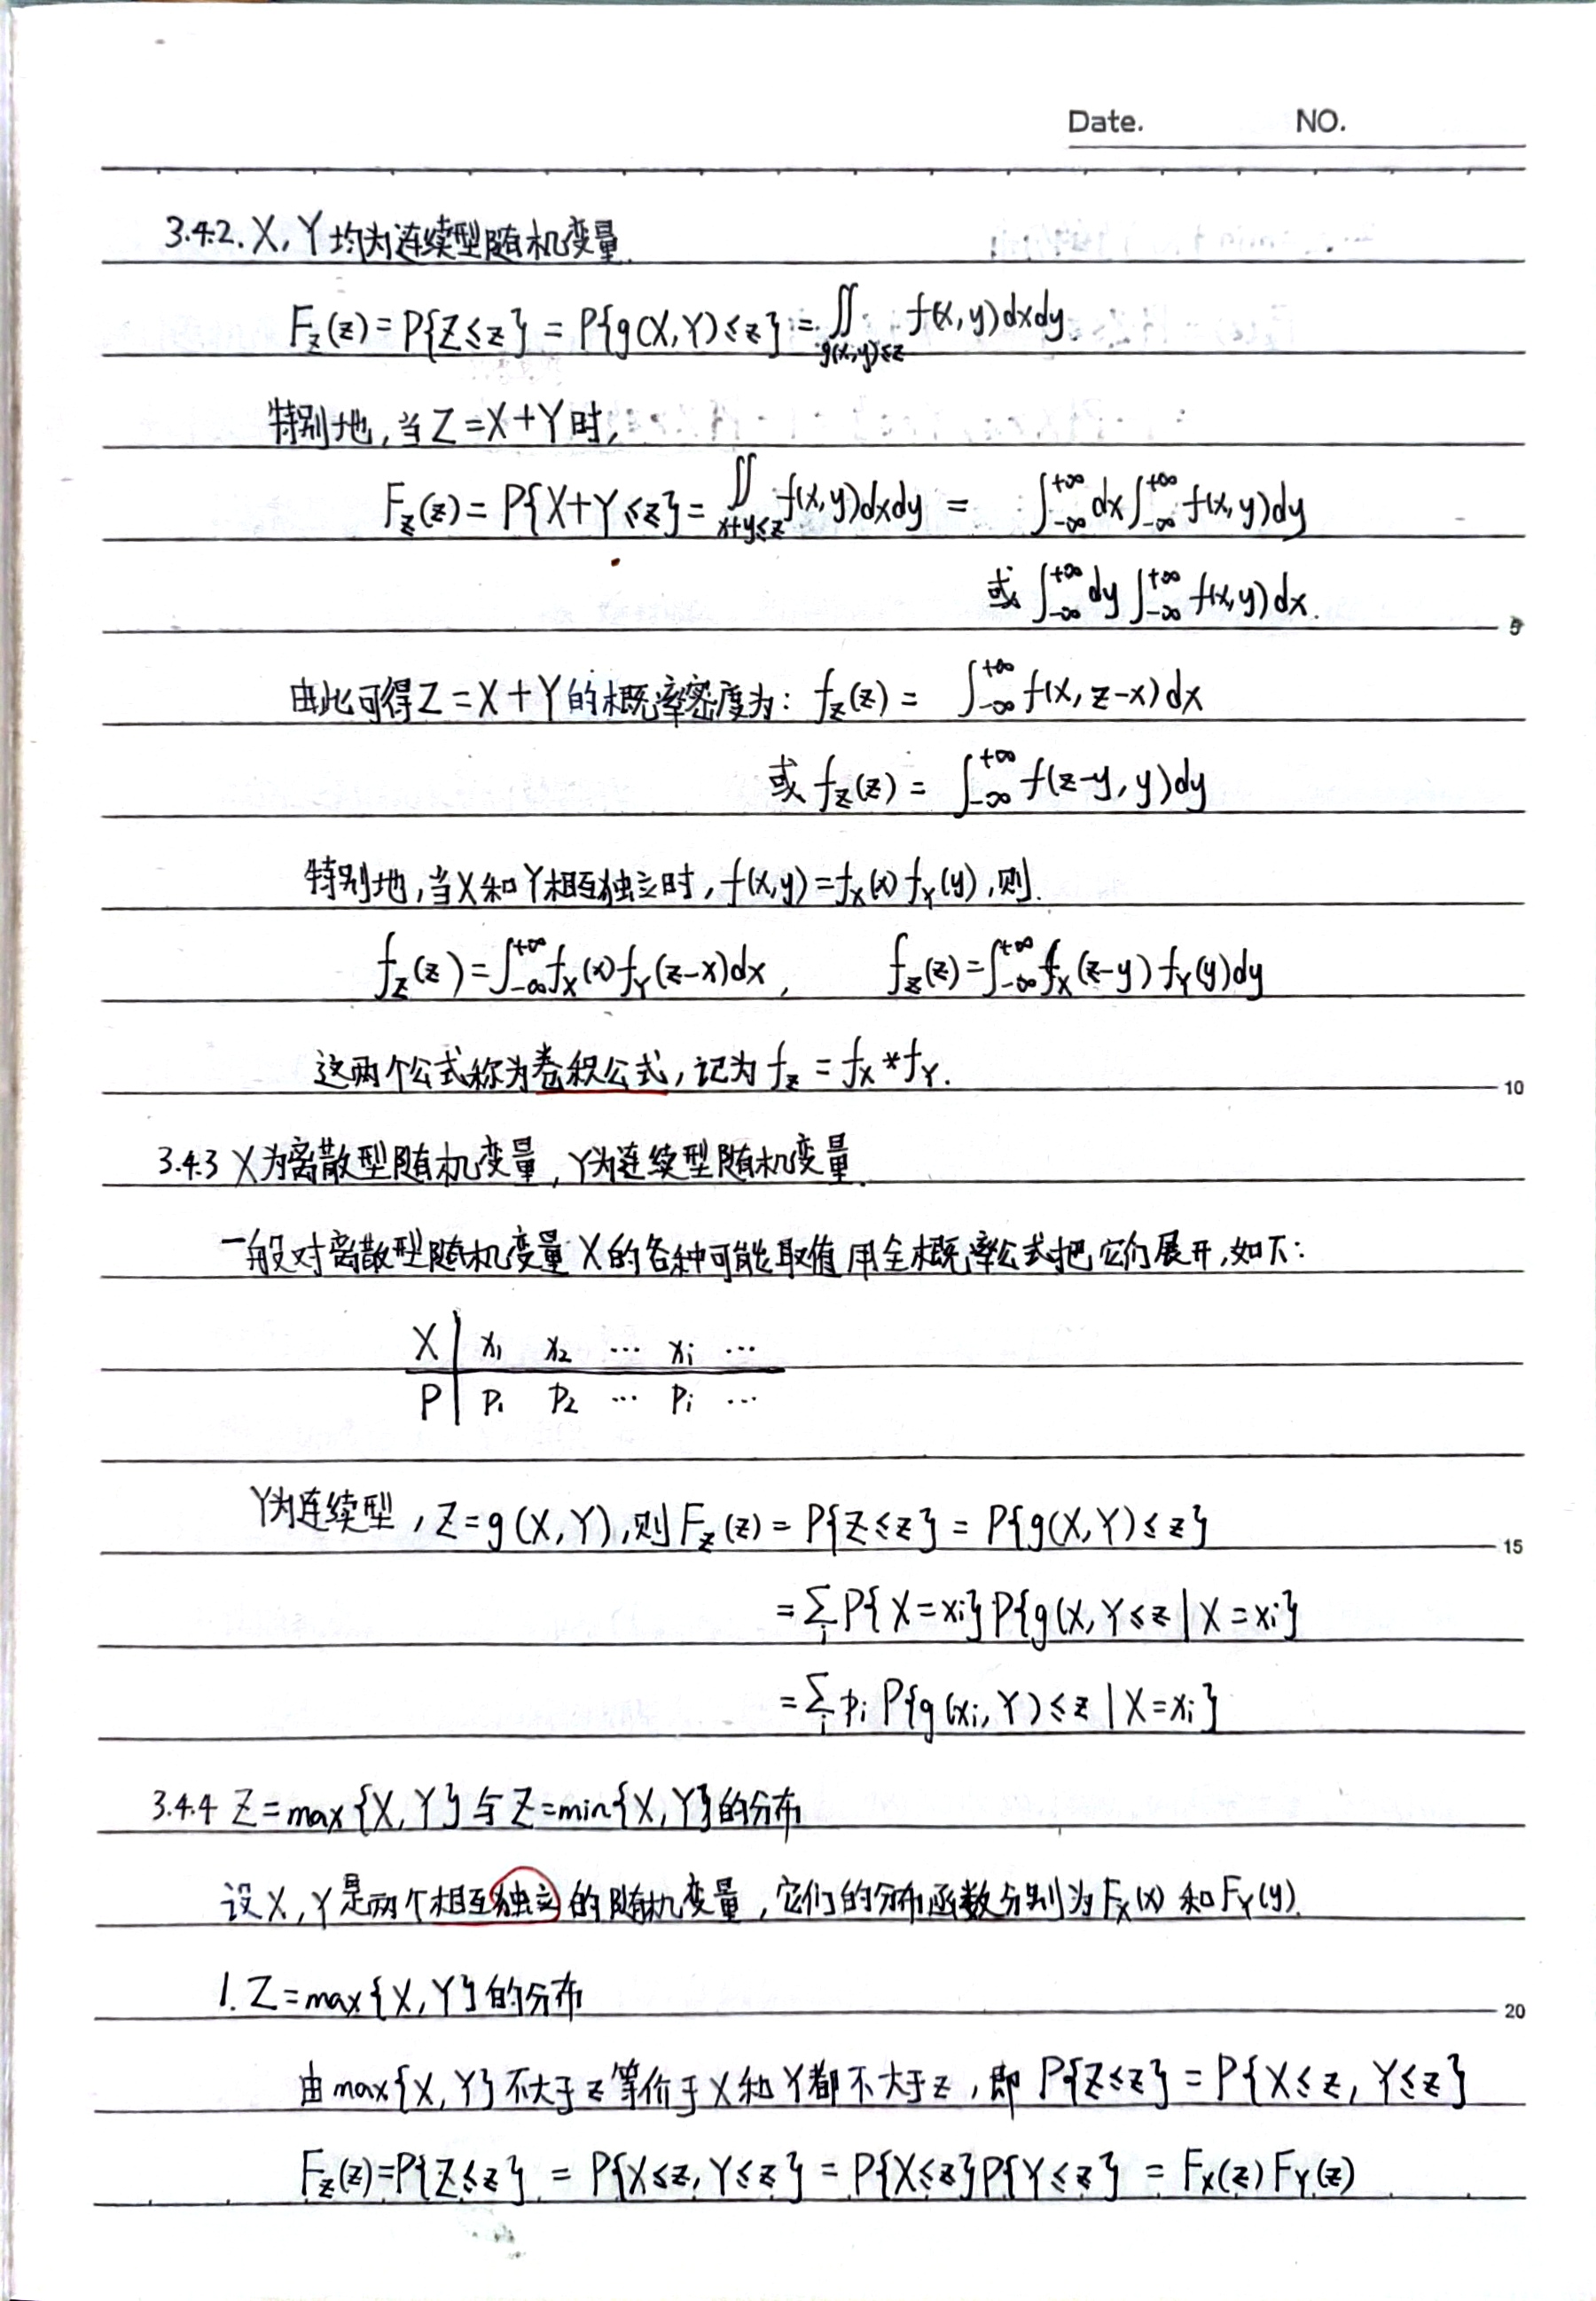 Date. NO.
3.4.2. X, Y 均为连续型随机变量.
F_Z(z) = P{Z≤z} = P{g(X,Y)≤z} = ∬_{g(x,y)≤z} f(x,y)dxdy
特别地,当Z=X+Y时,
F_Z(z) = P{X+Y≤z} = ∬_{x+y≤z} f(x,y)dxdy = ∫_{-∞}^{+∞} dx ∫_{-∞}^{+∞} f(x,y)dy
或 ∫_{-∞}^{+∞} dy ∫_{-∞}^{+∞} f(x,y)dx.
5
由此可得Z=X+Y的概率密度为: f_Z(z) = ∫_{-∞}^{+∞} f(x, z-x)dx
或 f_Z(z) = ∫_{-∞}^{+∞} f(z-y, y)dy
特别地,当X和Y相互独立时, f(x,y)=f_X(x) f_Y(y),则.
f_Z(z) = ∫_{-∞}^{+∞} f_X(x) f_Y(z-x)dx, f_Z(z) = ∫_{-∞}^{+∞} f_X(z-y) f_Y(y)dy
这两个公式称为卷积公式,记为 f_Z = f_X * f_Y.
10
3.4.3 X为离散型随机变量, Y为连续型随机变量.
一般对离散型随机变量X的各种可能取值用全概率公式把它们展开,如下:
X | x₁ x₂ ··· xᵢ ···
P | p₁ p₂ ··· pᵢ ···
Y为连续型, Z=g(X,Y),则F_Z(z) = P{Z≤z} = P{g(X,Y)≤z}
15
= ∑_i P{X=xᵢ}P{g(X,Y≤z | X=xᵢ}
= ∑_i pᵢ P{g(xᵢ,Y)≤z | X=xᵢ}
3.4.4 Z=max{X,Y}与Z=min{X,Y}的分布
设X,Y是两个相互独立的随机变量,它们的分布函数分别为F_X(x)和F_Y(y).
1. Z=max{X,Y}的分布
20
由max{X,Y}不大于z等价于X和Y都不大于z,即 P{Z≤z} = P{X≤z, Y≤z}
F_Z(z)=P{Z≤z} = P{X≤z, Y≤z} = P{X≤z}P{Y≤z} = F_X(z) F_Y(z)